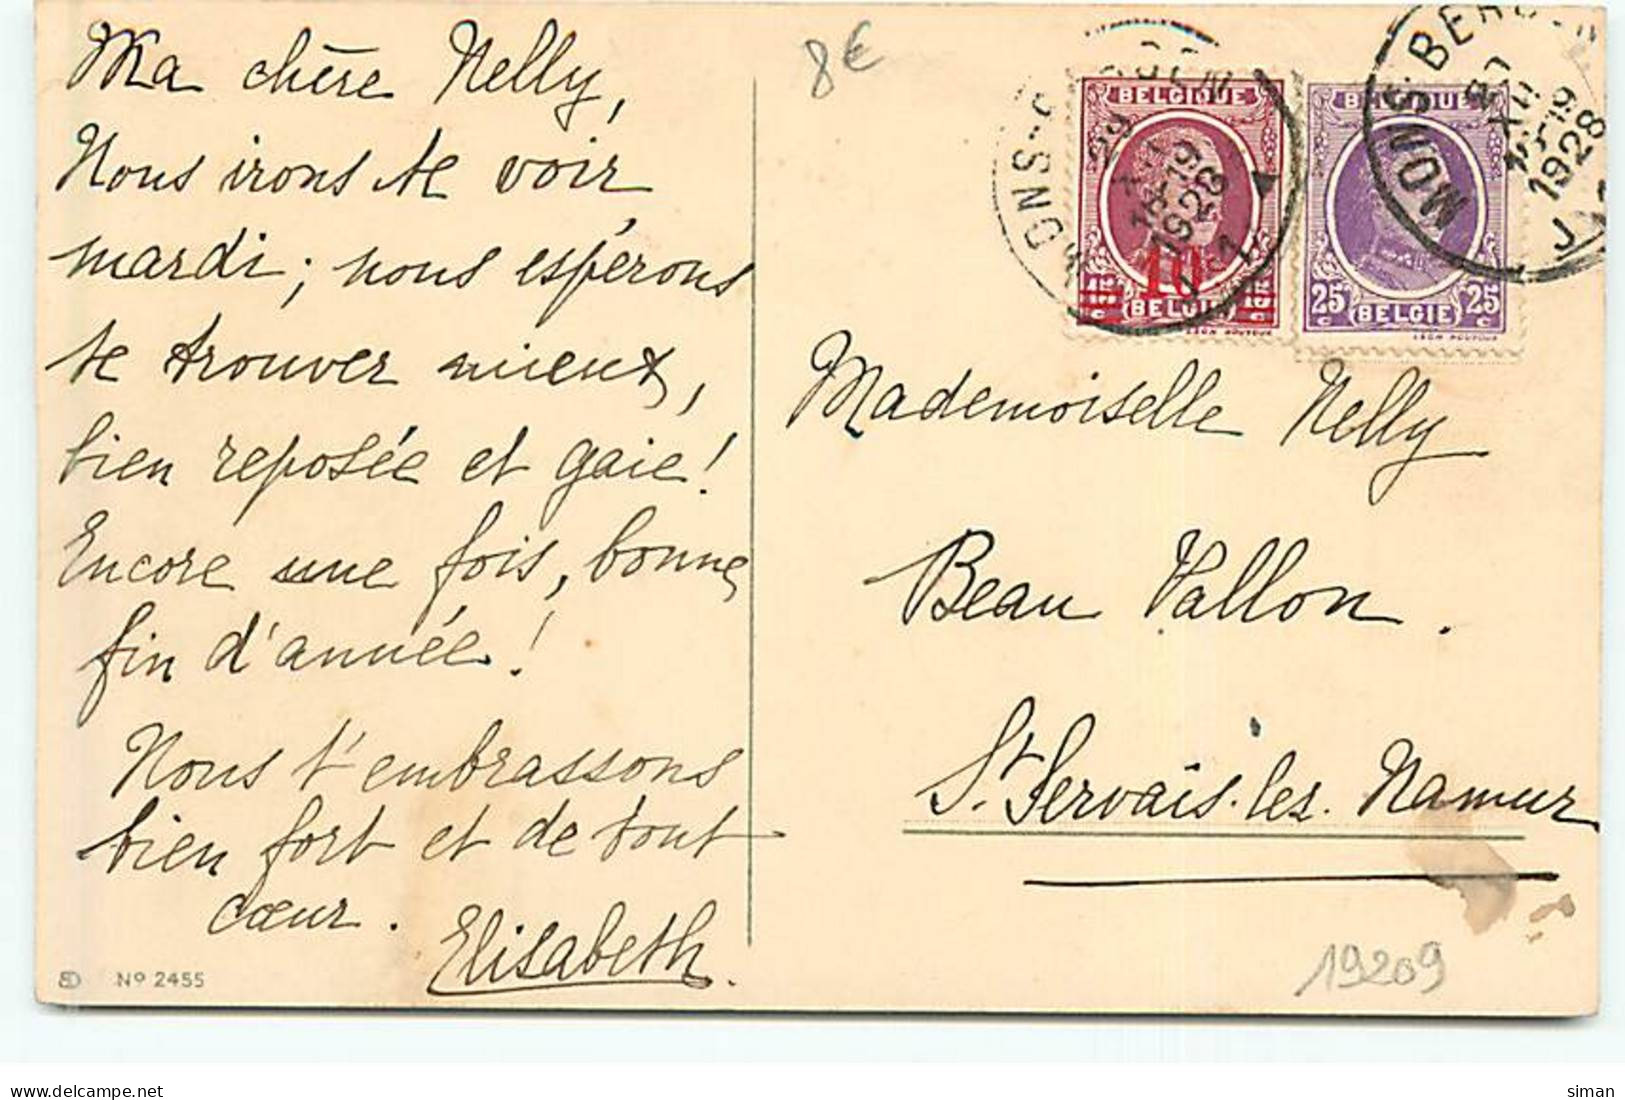 Ma chère Nelly,
Nous irons te voir
mardi; nous espérons
te trouver mieux,
bien reposée et gaie!
Encore une fois, bonne
fin d'année!
Nous t'embrassons
bien fort et de tout
cœur.
Elisabeth.
No 2455
8€
BELGIQUE
10
BELGIE
BELGIQUE
25 25
c BELGIE c
MONS-BERGEN
1928
J
Mademoiselle Nelly
Beau Vallon.
St. Servais-lez-Namur
19209
siman